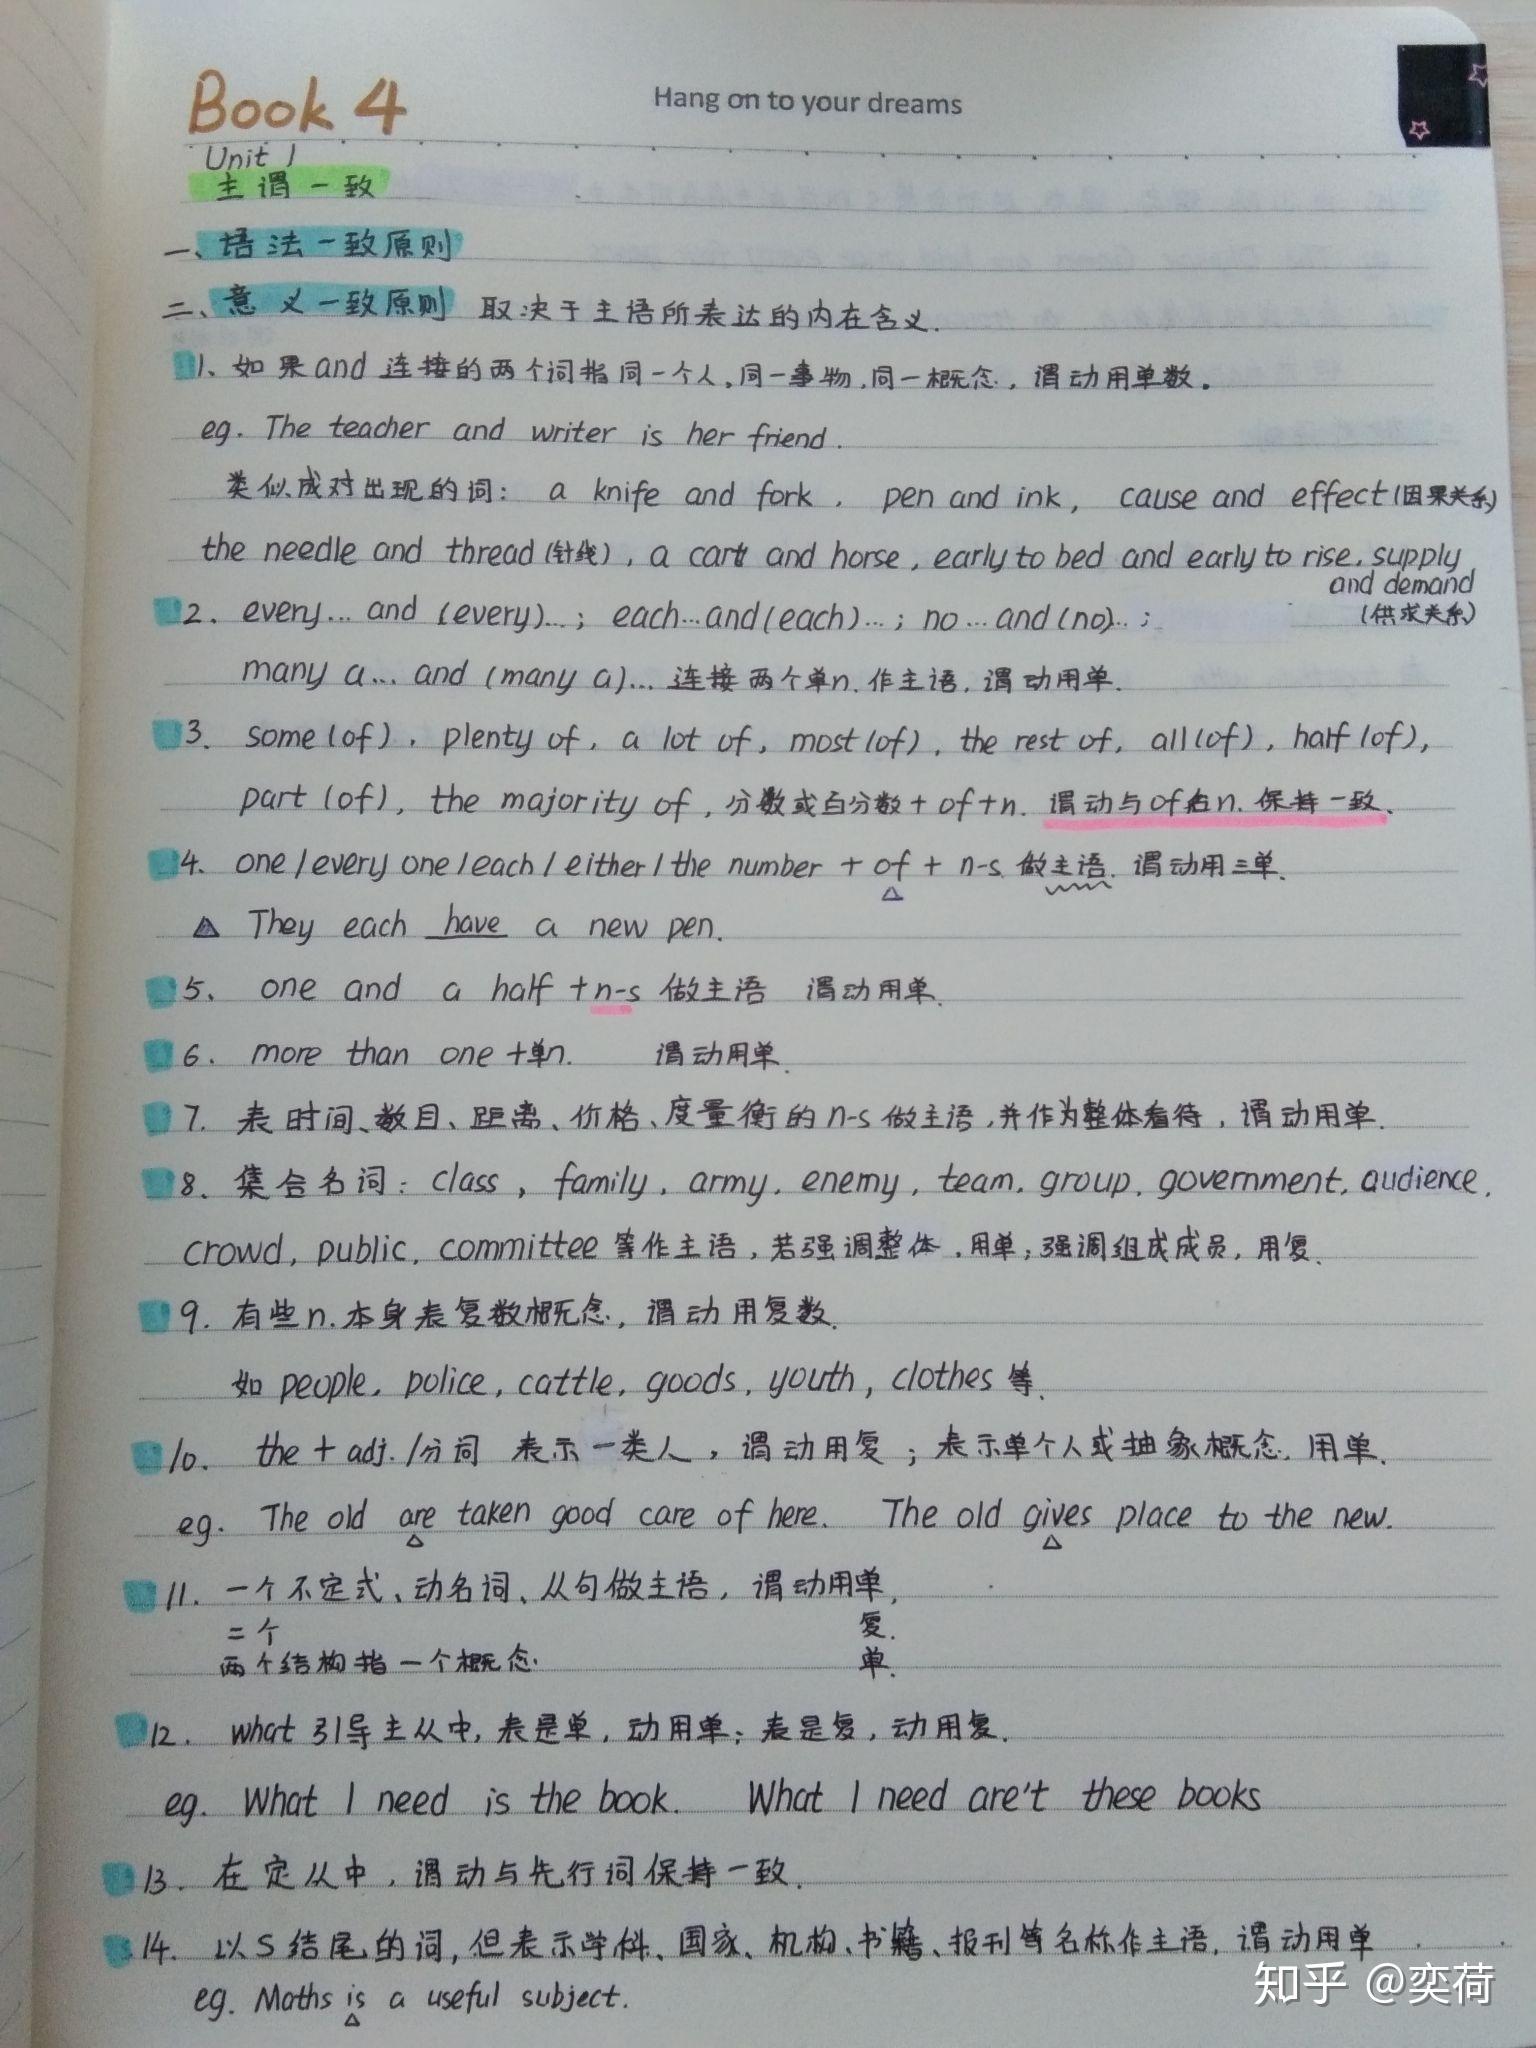 Book 4
Hang on to your dreams
Unit 1
主谓一致
一、语法一致原则
二、意义一致原则 取决于主语所表达的内在含义.
1、如果and 连接的两个词指同一个人,同一事物,同一概念,谓动用单数。
eg. The teacher and writer is her friend.
类似成对出现的词: a knife and fork, pen and ink, cause and effect(因果关系)
the needle and thread(针线), a cart and horse, early to bed and early to rise, supply
and demand
(供求关系)
2. every... and (every)...; each...and(each)...; no...and(no)...;
many a... and (many a)... 连接两个单n.作主语,谓动用单.
3. some(of), plenty of, a lot of, most(of), the rest of, all(of), half(of),
part(of), the majority of, 分数或百分数+of+n. 谓动与of后n.保持一致.
4. one/every one/each/either/the number + of + n-s 做主语. 谓动用三单.
△ They each have a new pen.
5、 one and a half +n-s 做主语 谓动用单.
6. more than one +单n. 谓动用单.
7. 表时间、数目、距离、价格、度量衡的n-s做主语,并作为整体看待,谓动用单.
8. 集合名词: class, family, army, enemy, team, group, government, audience,
crowd, public, committee 等作主语,若强调整体,用单;强调组成成员,用复.
9. 有些n.本身表复数概念,谓动用复数.
如 people, police, cattle, goods, youth, clothes 等.
10. the + adj./分词 表示一类人,谓动用复;表示单个人或抽象概念,用单.
eg. The old are taken good care of here. The old gives place to the new.
11. 一个不定式、动名词、从句做主语,谓动用单,
二个 复.
两个结构指一个概念. 单.
12. what 引导主从中,表是单,动用单;表是复,动用复.
eg. What I need is the book. What I need are't these books
13. 在定从中,谓动与先行词保持一致.
14. 以S结尾的词,但表示学科、国家、机构、书籍、报刊等名称作主语,谓动用单
eg. Maths is a useful subject.
知乎 @奕荷